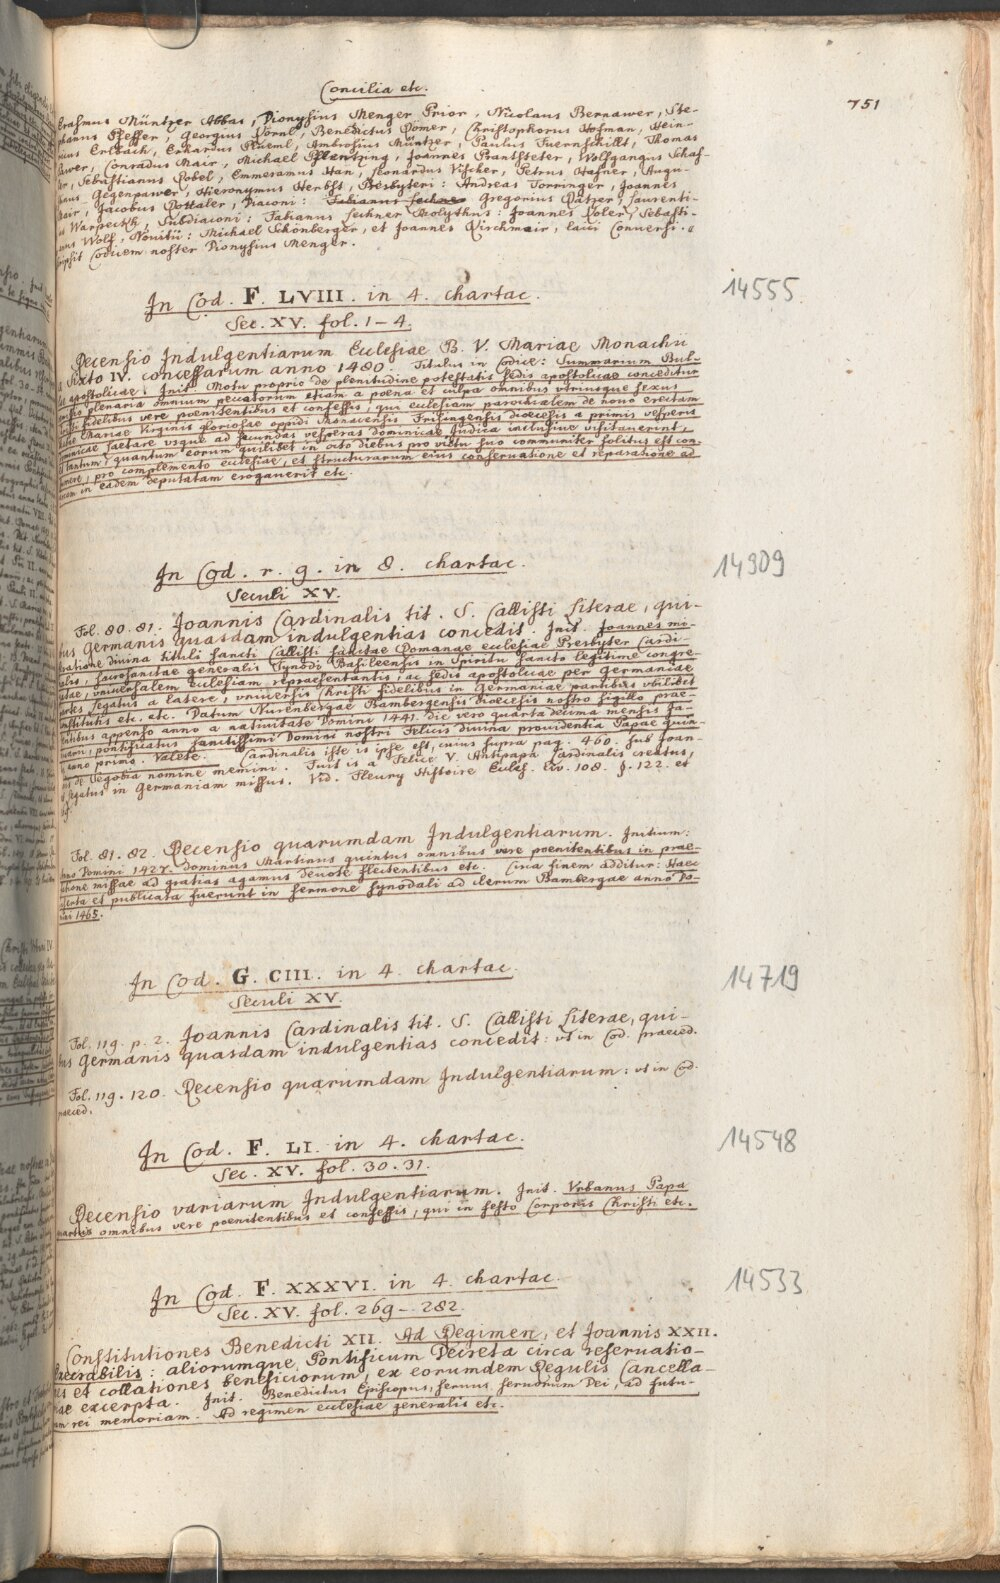 Concilia etc.
751
Erasmus Müntzer Abbas, Dionysius Menger Prior, Nicolaus Bernawer, Ste-
phanus Pfeffer, Georgius Dornl, Benedictus Pomer, Christophorus Hofman, Hein-
ricus Erlbach, Erhardus Pflueml, Ambrosius Müntzer, Paulus Fuernschilt, Thomas
Conradus Mair, Michael Pflentzing, Joannes Prantsteter, Wolfgangus Schaf-
Sebastianus Zobel, Emmeramus Han, Leonardus Vischer, Petrus Hafner, Augu-
Gegenpawer, Hieronymus Herbst, Presbyteri: Andreas Torringer, Joannes
Mair, Jacobus Pottaler, Diaconi: Fabianus Lechner Gregorius Pätzer, Laurenti-
us Warpeckh, Subdiaconi: Fabianus Lechner Acolythus: Joannes Poler, Sebasti-
anus Wolf, Nouitii: Michael Schönberger, et Joannes Kirchmair, laici Conuersi.
scripsit Codicem noster Dionysius Menger.
In Cod. F. LVIII. in 4. chartac.
14555
Sec. XV. fol. 1-4.
Recensio Indulgentiarum Ecclesiae B. V. Mariae Monachii
a Sixto IV. concessarum anno 1480. Titulus in Codice: Summarium Bul-
lae apostolicae. Init. Motu proprio de plenitudine potestatis sedis apostolicae conceditur
remissio plenaria omnium peccatorum etiam a poena et culpa omnibus vtriusque sexus
Christi fidelibus vere poenitentibus et confessis, qui ecclesiam parochialem de nouo erectam
beatae Mariae Virginis gloriosae oppidi Monacensis Frisingensis dioecesis a primis vesperis
dominicae laetare vsque ad secundas vesperas dominicae Judica inclusiue visitauerint,
et tantum, quantum eorum quilibet in octo diebus pro victu suo communiter solitus est con-
sumere, pro complemento ecclesiae, et structurarum eius conseruatione et reparatione ad
arcam in eadem deputatam erogauerit etc.
In Cod. r. 9. in 8. chartac.
14909
Seculi XV.
Fol. 80. 81. Joannis Cardinalis tit. S. Callisti literae, qui-
bus Germanis quasdam indulgentias concedit. Init. Joannes mi-
seratione diuina tituli sancti Callisti sanctae Romanae ecclesiae Presbyter Cardi-
nalis, sacrosanctae generalis Synodi Basileensis in Spiritu sancto legitime congre-
gatae, vniuersalem ecclesiam repraesentantis, ac sedis apostolicae per Germaniae
partes legatus a latere, vniuersis Christi fidelibus in Germaniae partibus vbilibet
constitutis etc. etc. Datum Nurenbergae Bambergensis dioecesis nostro sigillo prae-
sentibus appenso anno a natiuitate Domini 1441. die vero quarta decima mensis Ja-
nuarii, pontificatus sanctissimi Domini nostri Felicis diuina prouidentia Papae quin-
ti anno primo. Valete. Cardinalis iste is ipse est, cuius supra pag. 460. sub Joan-
nis de Segobia nomine memini. Fuit is a Felice V. Antipapa Cardinalis creatus,
et Legatus in Germaniam missus. Vid. Fleury Histoire Eccles. Liv. 108. §. 122. et
Fol. 81. 82. Recensio quarumdam Indulgentiarum. Initium:
Anno Domini 1427. Dominus Martinus quintus omnibus vere poenitentibus in prae-
fatione missae ad gratias agamus deuote flectentibus etc. Circa finem additur: Haec
inserta et publicata fuerunt in sermone synodali ad clerum Bambergae anno Do-
mini 1465.
In Cod. G. CIII. in 4. chartac.
14719
Seculi XV.
Fol. 119. p. 2. Joannis Cardinalis tit. S. Callisti literae, qui-
bus Germanis quasdam indulgentias concedit: vt in Cod. praeced.
Fol. 119. 120. Recensio quarumdam Indulgentiarum: vt in Cod.
praeced.
In Cod. F. LI. in 4. chartac.
14548
Sec. XV. fol. 30. 31.
Recensio variarum Indulgentiarum. Init. Vrbanus Papa
quartus omnibus vere poenitentibus et confessis, qui in festo Corporis Christi etc.
In Cod. F. XXXVI. in 4. chartac.
14533
Sec. XV. fol. 269-282.
Constitutiones Benedicti XII. Ad Regimen, et Joannis XXII.
Execrabilis: aliorumque Pontificum Decreta circa reseruatio-
nes et collationes beneficiorum, ex eorumdem Regulis Cancella-
riae excerpta. Init. Benedictus Episcopus, seruus seruorum Dei, ad futu-
ram rei memoriam. Ad regimen ecclesiae generalis etc.